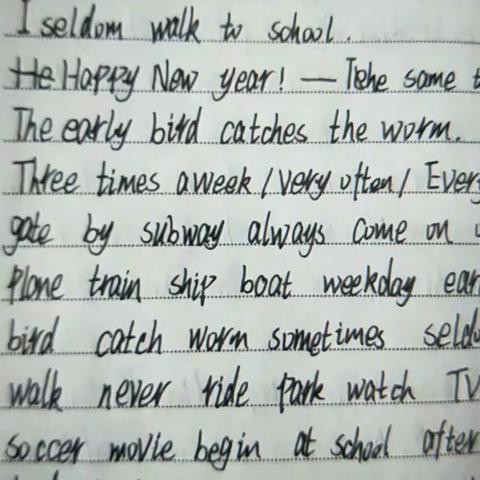 I seldom walk to school.
He Happy New year! — The same
The early bird catches the worm.
Three times a week / very often /
gate by subway always come on
plane train ship boat weekday
bird catch worm sometimes
walk never ride park watch TV
soccer movie begin at school after